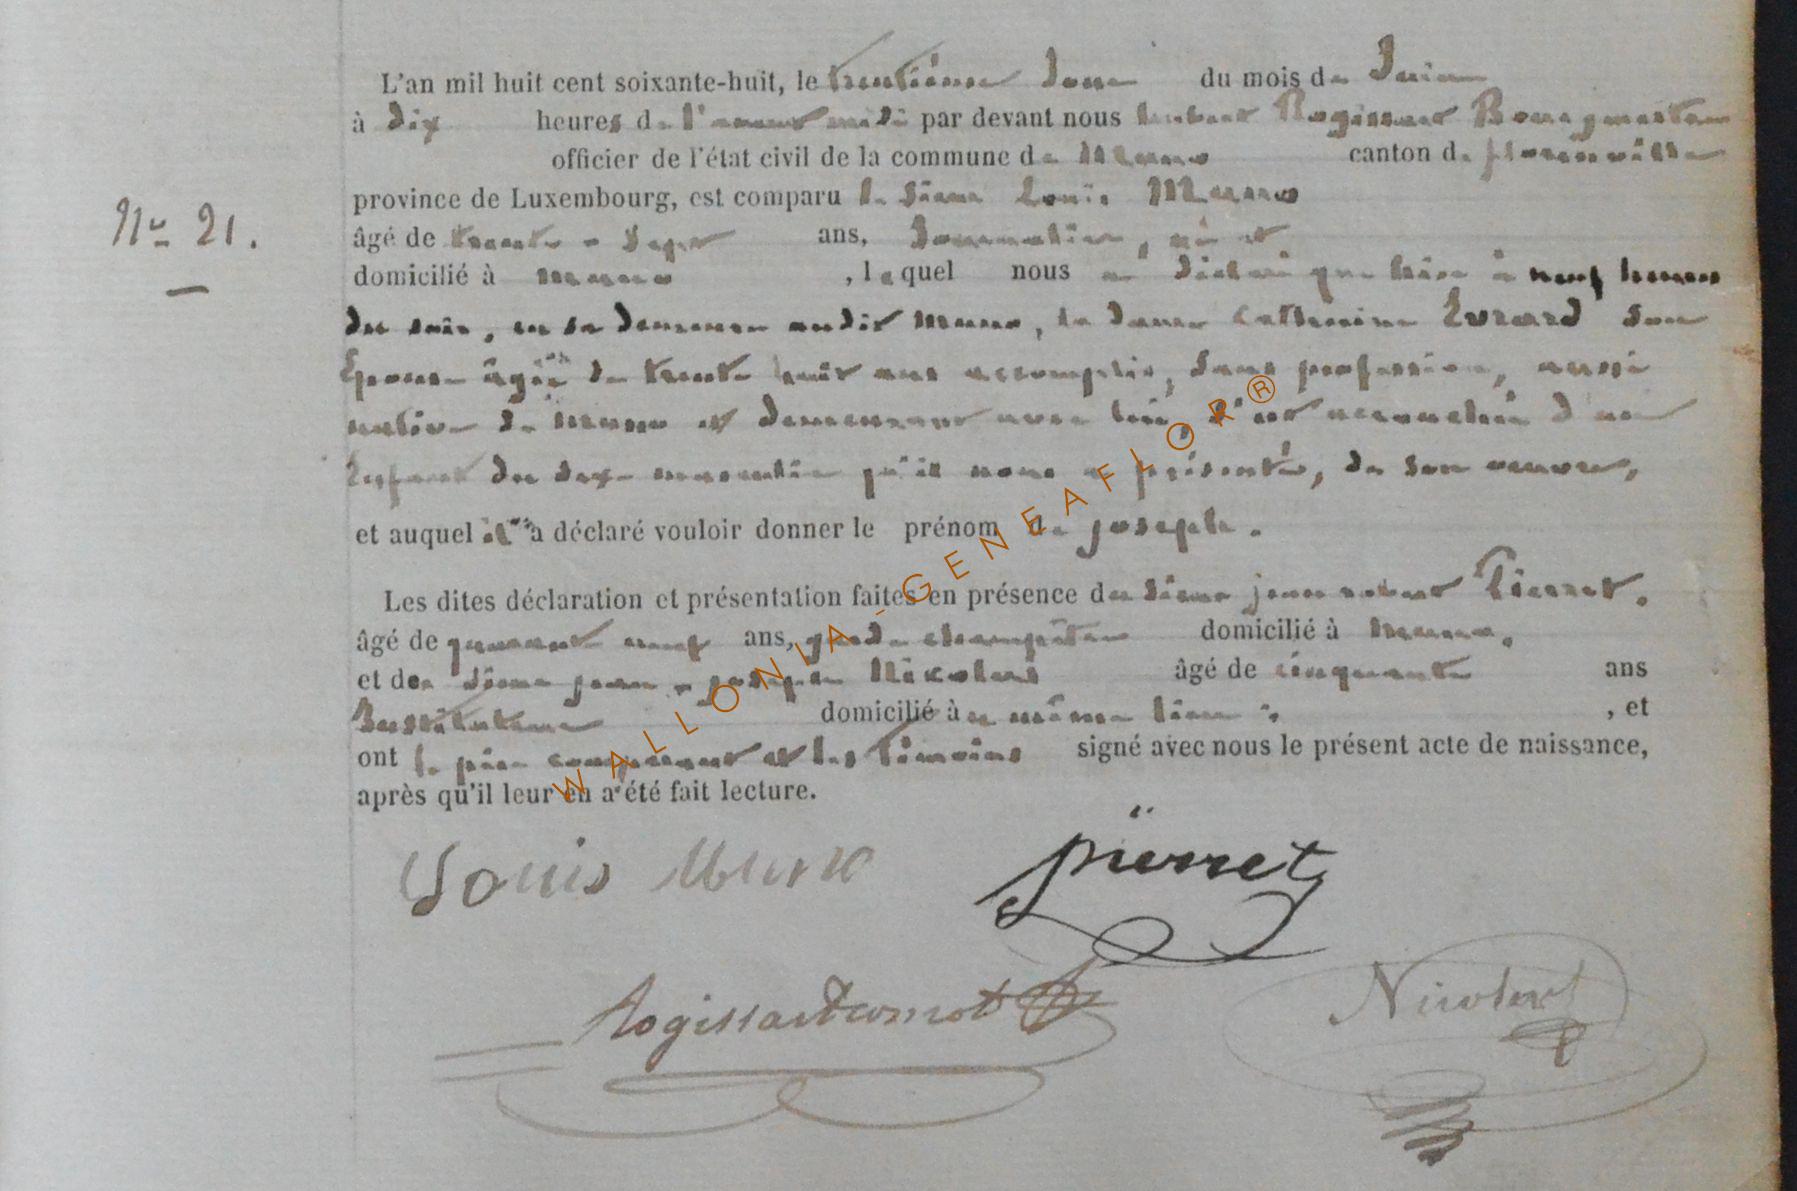 L'an mil huit cent soixante-huit, le trentième jour du mois de Juin
à dix heures de l'avant midi par devant nous Lambert Rogissart Bourgmestre
officier de l'état civil de la commune de Muno canton de florenville
province de Luxembourg, est comparu le sieur Louis Muno
âgé de trente-sept ans, Journalier, né et
domicilié à Muno, lequel nous a déclaré que hier à neuf heures
du soir, en sa demeure audit Muno, la dame Catherine Evrard son
Epouse âgée de trente huit ans accomplis, sans profession, aussi
native de Muno et demeurant avec lui, s'est accouchée d'un
Enfant du sexe masculin qu'il nous a présenté, de son œuvre,
et auquel il a déclaré vouloir donner le prénom de joseph.
Les dites déclaration et présentation faites en présence du sieur jean Pierret.
âgé de quarante neuf ans, garde champêtre domicilié à Muno.
et du sieur jean-joseph Nicolas âgé de cinquante ans
Instituteur domicilié à même lieu, et
ont le père comparant et les témoins signé avec nous le présent acte de naissance,
après qu'il leur en a été fait lecture.
N° 21.
Louis Muno
pierret
Rogissart
Nicolas
WALLONIA-GENEAFLOR®